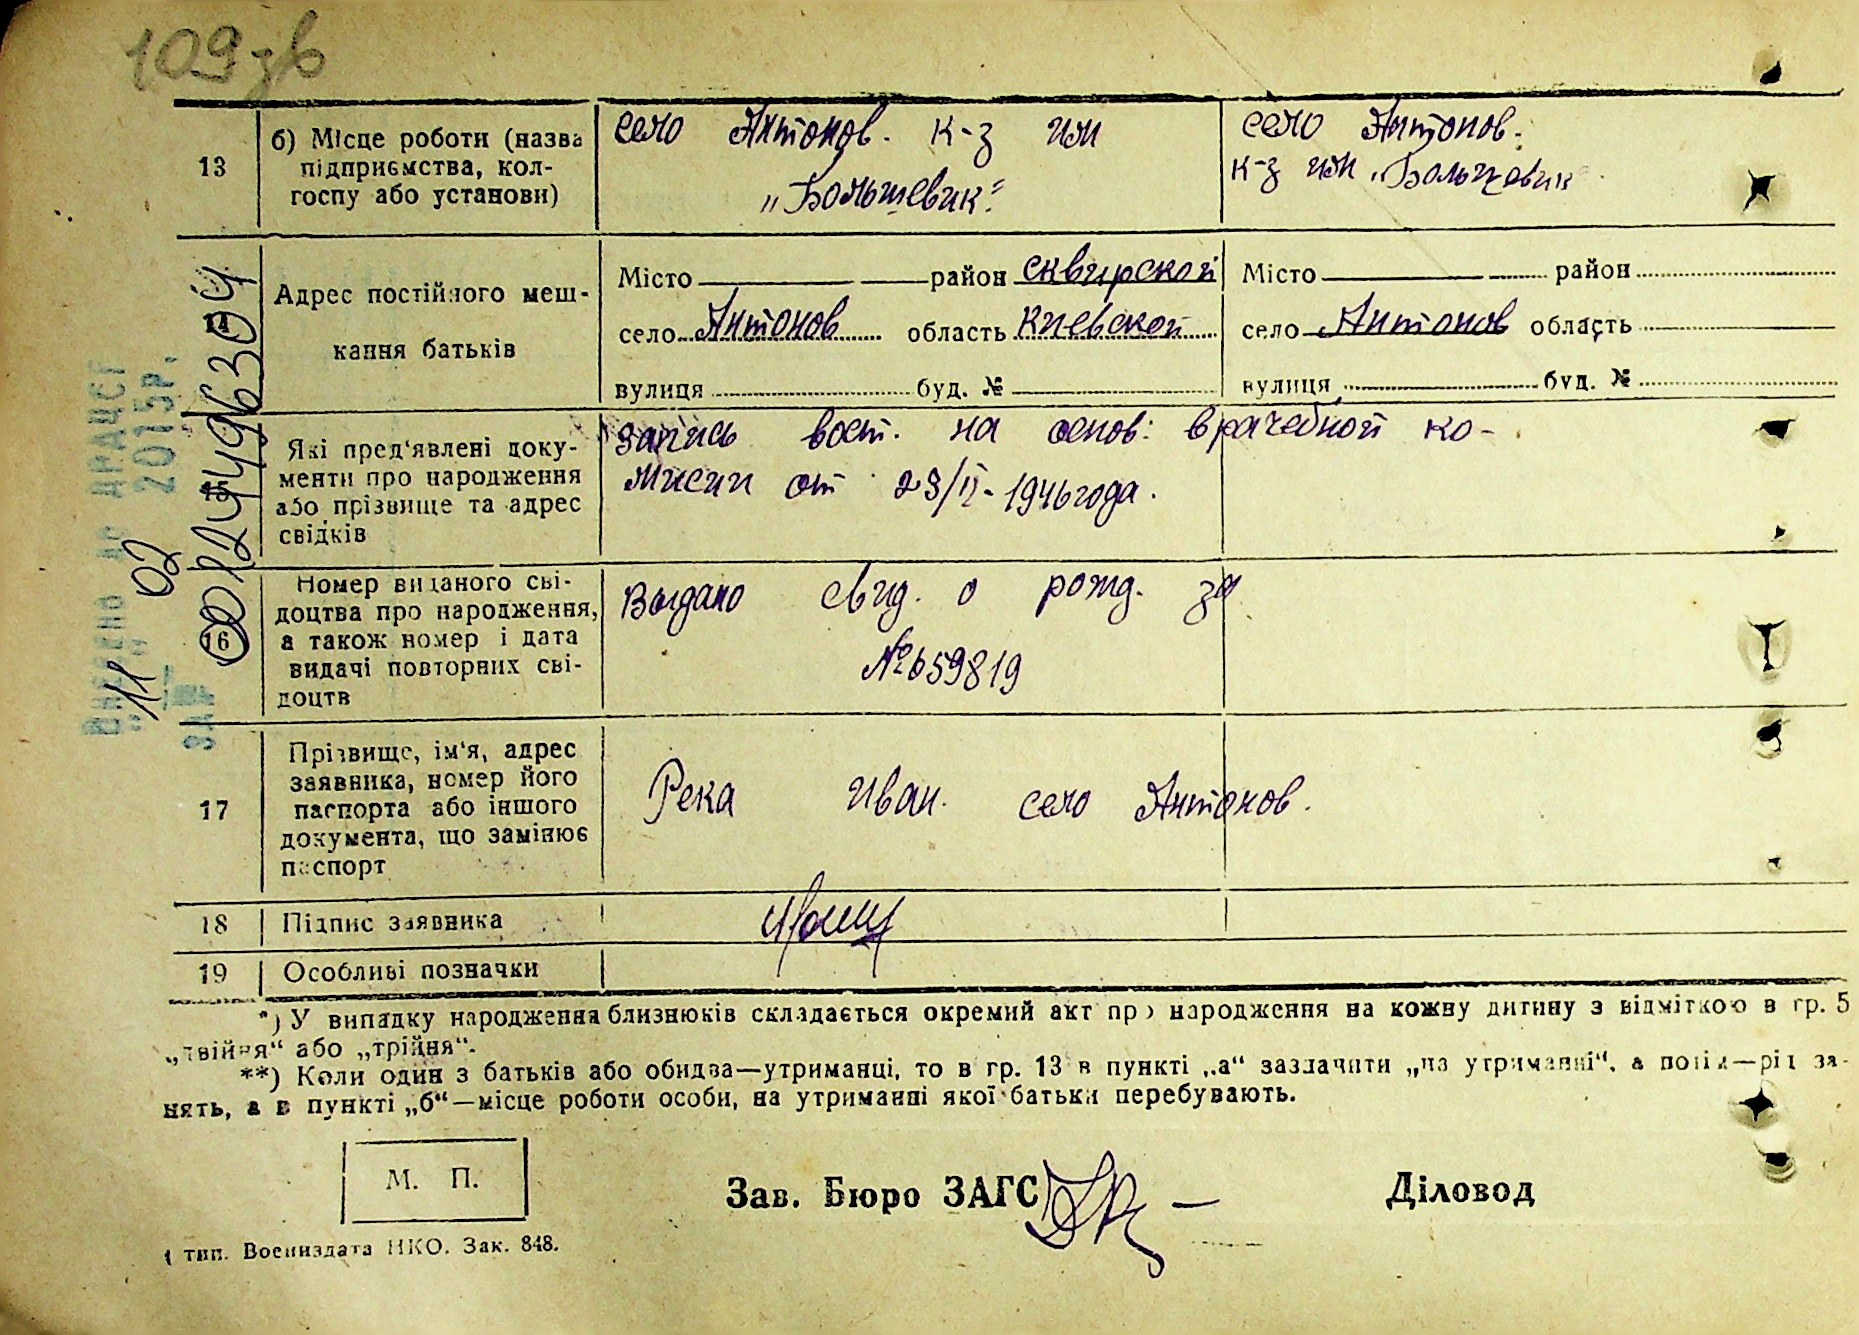 109зв
13
б) Місце роботи (назва
підприємства, кол-
госпу або установи)
село Антонов. к-з им
„Большевик“.
село Антонов.
к-з им „Большевик“
Адрес постійного меш-
кання батьків
Місто район сквирской
село Антонов область Киевской
вулиця буд. №
Місто район
село Антонов область
вулиця буд. №
Які пред'явлені доку-
менти про народження
або прізвище та адрес
свідків
запись вост. на основ. врачебной ко-
мисии от 23/II-1946 года.
16
Номер виданого сві-
доцтва про народження,
а також номер і дата
видачі повторних сві-
доцтв
Выдано свид. о рожд. за
№ 659819
17
Прізвище, ім'я, адрес
заявника, номер його
паспорта або іншого
документа, що замінює
паспорт
Река Иван. село Антонов.
18
Підпис заявника
19
Особливі позначки
*) У випадку народження близнюків складається окремий акт про народження на кожну дитину з відміткою в гр. 5
„двійня“ або „трійня“.
**) Коли один з батьків або обидва—утриманці, то в гр. 13 в пункті „а“ зазначити „на утриманні“, а потім—рід за-
нять, а в пункті „б“—місце роботи особи, на утриманні якої батьки перебувають.
М. П.
Зав. Бюро ЗАГС
Діловод
1 тип. Воениздата НКО. Зак. 848.
Внесено до ДРАЦСГ
11 02 2015р.
ЗА №
00124496304